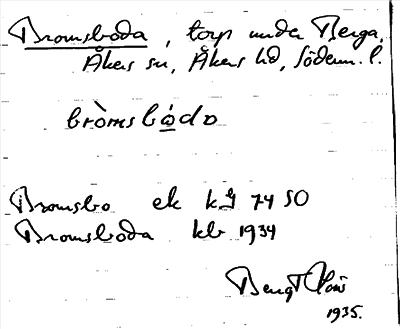 Bromsboda, torp under Berga,
Åkers sn, Åkers hd, Södem. l.
bròmsbódo
Bromsbo ek kg 74 SO
Bromsboda kb 1934
Bengt
1935.